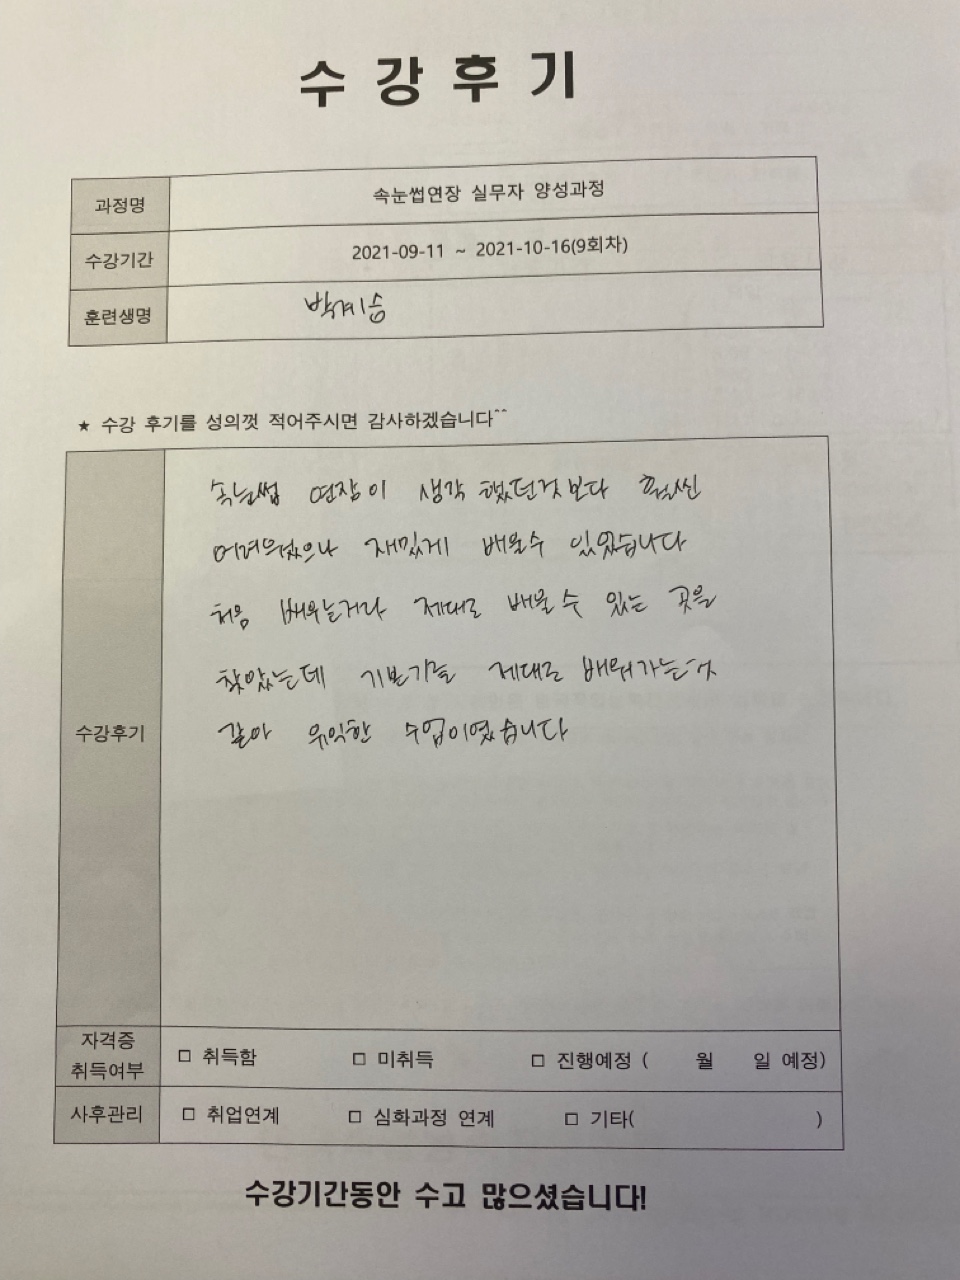 수 강 후 기
과정명 속눈썹연장 실무자 양성과정
수강기간 2021-09-11 ~ 2021-10-16(9회차)
훈련생명 박계승
★ 수강 후기를 성의껏 적어주시면 감사하겠습니다^^
속눈썹 연장이 생각 했던것 보다 훨씬
어려웠으나 재밌게 배울수 있었습니다
처음 배우는거라 제대로 배울 수 있는 곳을
찾았는데 기본기를 제대로 배워가는것
수강후기
같아 유익한 수업이였습니다
자격증
취득여부
□ 취득함 □ 미취득 □ 진행예정 ( 월 일 예정)
사후관리 □ 취업연계 □ 심화과정 연계 □ 기타( )
수강기간동안 수고 많으셨습니다!